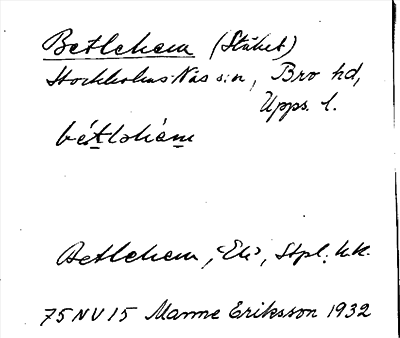 Betlehem (Stället)
Stockholms-Näs sn, Bro hd,
Upps. l.
bétləhèm
Betlehem, Stpl. hk.
75 NV 15 Manne Eriksson 1932